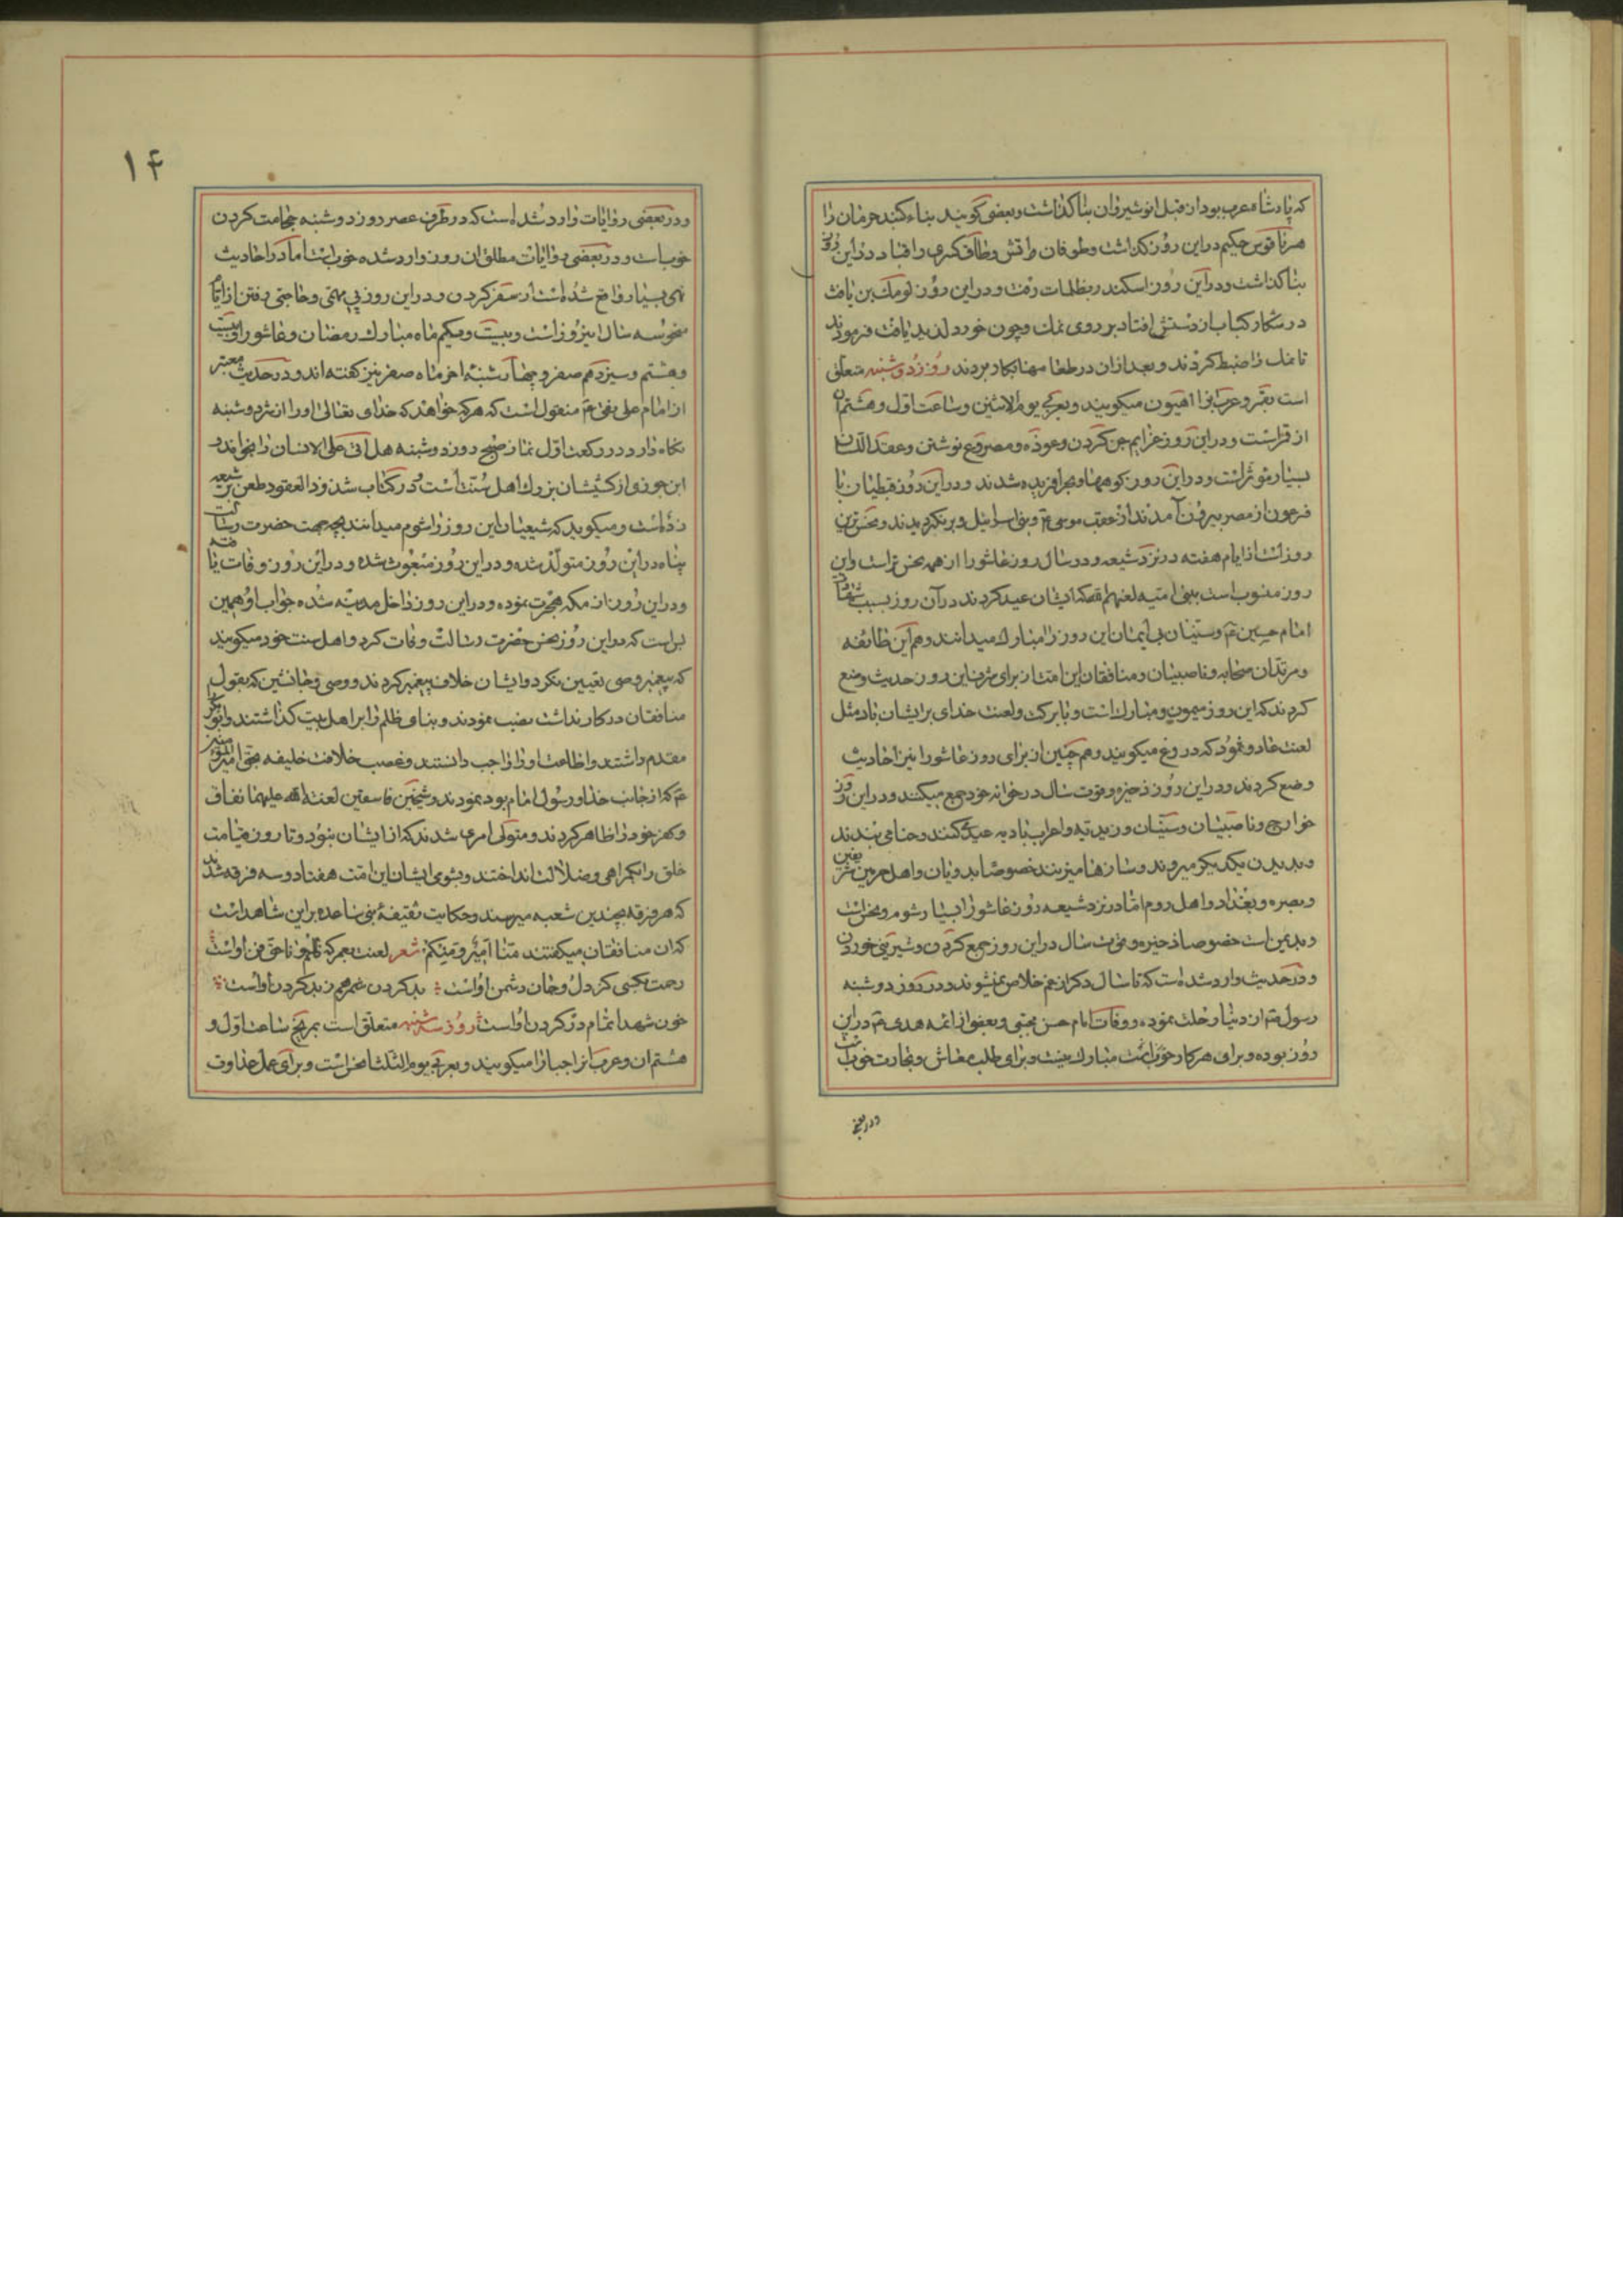 که پادشاه عرب بود از قبل انوشیروان بنا گذاشت و بعضی گویند بناء گنبد هرمان را
هرناقوس حکیم در این روز گذاشت و طوفان واقش و طاق کسری را قباد در این روز
بنا گذاشت و در این روز اسکندر بظلمات رفت و در این روز لومک بن یافث
در شکار کباب از دستش افتاد بر روی نمک و چون خورد لذیذ یافت فرمودند
تا نمک را ضبط کردند و بعد از آن در طعامها بکار بردند روز دوشنبه متعلق
است بقمر و عرب آنرا اهیون میگویند و بعربی یوم الاثنین و ساعت اول و هشتم آن
از قمر است و در این روز عزایم جن کردن و عوذه و مصروع نوشتن و عقد اللسان
بسیار مؤثر است و در این روز کوهها و بحر آفریده شدند و در این روز قبطیان با
فرعون از مصر بیرون آمدند از عقب موسی ع و بنی اسرائیل و برنگردیدند و نحس‌ترین
روزهاست از ایام هفته در نزد شیعه و در سال روز عاشورا از همه نحس‌تر است و این
روز منسوب است ببنی امیه لعنهم الله که ایشان عید کردند در آن روز بسبب شهادت
امام حسین ع و سنیان بی ایمان این روز را مبارک میدانند و هم این طائفه
و مرتدان صحابه و ناصبیان و منافقان این امت از برای شرف این روز حدیث وضع
کردند که این روز میمون و مبارک است و با برکت و لعنت خدای بر ایشان باد مثل
لعنت عاد و ثمود که دروغ میگویند و هم چنین از برای روز عاشورا نیز احادیث
وضع کردند و در این روز ذخیره و قوت سال در خوانه خود جمع میکنند و در این روز
خوارج و ناصبیان و سنیان و زیدیه و اعراب بادیه عید کنند و حنا می‌بندند
و بدیدن یکدیگر میروند و سازها میزنند خصوصا بدویان و اهل حرمین شریفین
و بصره و بغداد و اهل روم اما در نزد شیعه روز عاشورا بسیار شوم و نحس است
و بدیمن است خصوصا ذخیره و قوت سال در این روز جمع کردن و شیرینی خوردن
و در حدیث وارد شده است که تا سال دیگر از غم خلاص نمیشوند و در روز دوشنبه
رسول ص از دنیا رحلت نموده و وفات امام حسن مجتبی و بعضی از ائمه هدی ع در این
روز بوده و برای هر کار خوب است مبارک نیست و برای طلب معاش و تجارت خوب است
و در بعضی
۱۴
و در بعضی روایات وارد شده است که در طرف عصر روز دوشنبه حجامت کردن
خوبست و در بعضی روایات مطلق آن روز وارد شده خوب است اما در احادیث
نهی بسیار واقع شده است از سفر کردن و در این روز پی مهمی و حاجتی رفتن از ایام
منحوسه سال نیز روز است و بیست و یکم ماه مبارک رمضان و عاشورا و بیست
و هشتم و سیزدهم صفر و چهارشنبه آخر ماه صفر نیز گفته‌اند و در حدیث معتبر
از امام علی نقی ع منقول است که هر که خواهد که خدای تعالی او را از شر دوشنبه
نگاه دارد در رکعت اول نماز صبح روز دوشنبه هل اتی علی الانسان را بخواند و
ابن جوزی از کشیشان بزرگ اهل سنت است و در کتاب شذور العقود طعن بر شیعه
زده است و میگوید که شیعیان این روز را شوم میدانند بچه جهت حضرت رسالت
پناه در این روز متولد شده و در این روز مبعوث شده و در این روز وفات یافته
و در این روز از مکه هجرت نموده و در این روز داخل مدینه شده جواب او همین
بس است که در این روز نحس حضرت رسالت وفات کرد و اهل سنت خود میگویند
که پیغمبر وصی تعیین نکرد و ایشان خلاف پیغمبر کردند و وصی و جانشین که بقول
منافقان در کار نداشت نصب نمودند و بنای ظلم را بر اهل بیت گذاشتند و ابوبکر
مقدم داشتند و اطاعت او را واجب دانستند و غصب خلافت خلیفه بحق امیر المؤمنین
ع که از جانب خدا و رسول امام بود نمودند و شیخین فاسقین لعنة الله علیهما نفاق
و کفر خود را ظاهر کردند و متولی امری شدند که از ایشان نبود و تا روز قیامت
خلق را بگمراهی و ضلالت انداختند و بشومی ایشان این امت هفتاد و سه فرقه شدند
که هر فرقه بچندین شعبه میرسند و حکایت سقیفه بنی ساعده بر این شاهد است
که آن منافقان میگفتند منا امیر و منکم شعر لعنت بعمر که ظلم و ناحق فن اوست
رحمت بکسی کز دل و جان دشمن اوست بد کردن شمر هم ز بد کردن اوست
خون شهدا تمام در گردن اوست روز سه شنبه متعلق است بمریخ ساعت اول و
هشتم آن و عرب آنرا جبار میگویند و بعربی یوم الثلثا نحس است و برای عمل عداوت